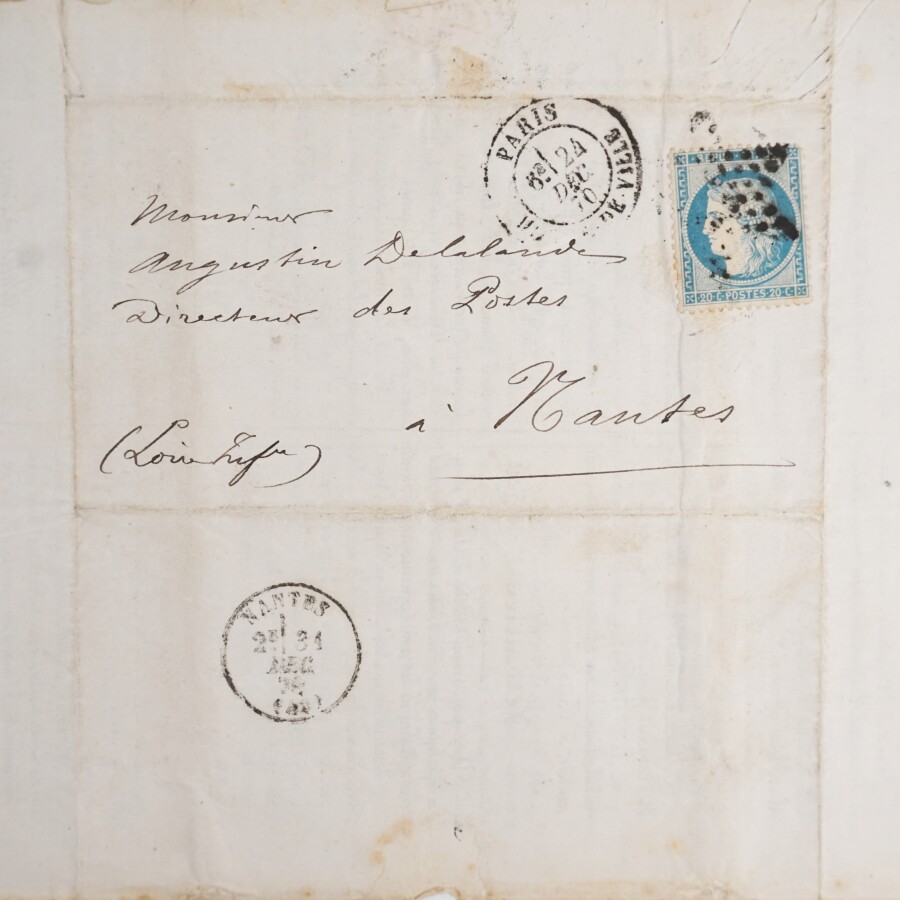 PARIS
6E 24
DEC.
70
DE VILLE
Monsieur
Augustin Delalande
Directeur des Postes
à Nantes
(Loire Infre)
20 C POSTES 20 C
NANTES
2E 31
DEC